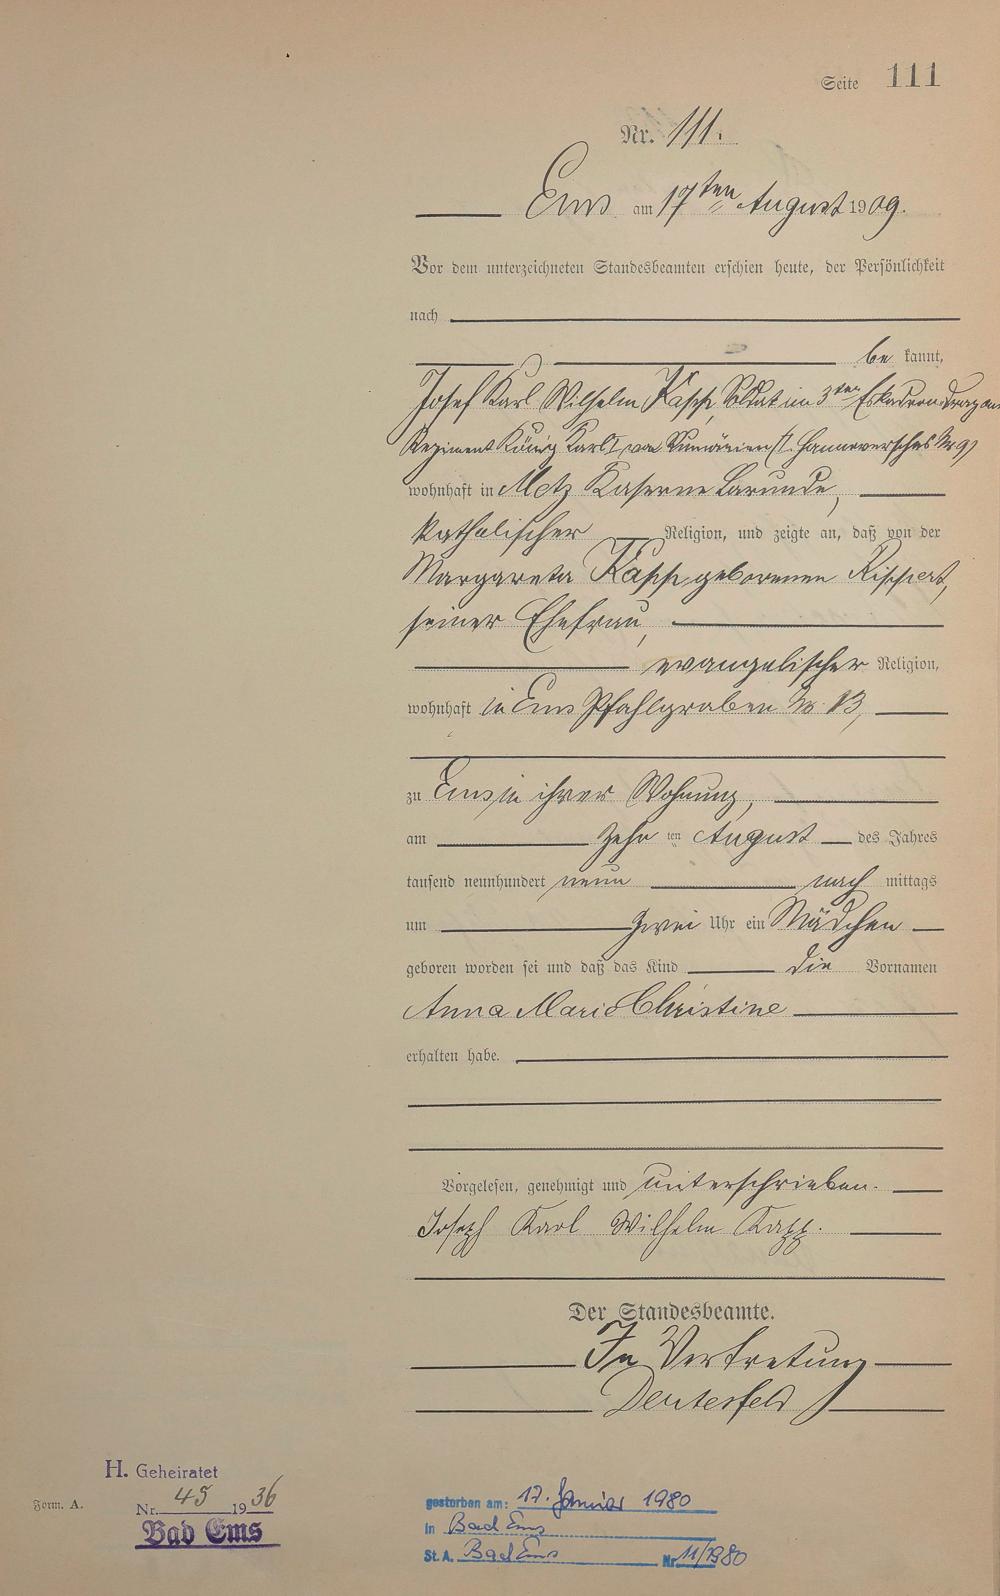 Seite 111
Nr. 111.
Ems am 17ten August 1909.
Vor dem unterzeichneten Standesbeamten erschien heute, der Persönlichkeit
nach
be kannt,
Josef Karl Wilhelm Kapp, Soldat im 3ten Eskadron Dragoner
Regiment König Karl I von Rumänien (1. Hannoversches Nr 9)
wohnhaft in Metz Kaserne
katholischer Religion, und zeigte an, daß von der
Margareta Kapp geborenen Rippert,
seiner Ehefrau,
evangelischer Religion,
wohnhaft in Ems Pfahlgraben Nr. 13,
zu Ems in ihrer Wohnung,
am zehn ten August des Jahres
tausend neunhundert neun nach mittags
um zwei Uhr ein Mädchen
geboren worden sei und daß das Kind die Vornamen
Anna Marie Christine
erhalten habe.
Vorgelesen, genehmigt und unterschrieben.
Joseph Karl Wilhelm Kapp.
Der Standesbeamte.
In Vertretung
H. Geheiratet
Nr. 45 1936
Bad Ems
Form. A.
gestorben am: 17. Januar 1980
in Bad Ems
St. A. Bad Ems Nr. 11/1980